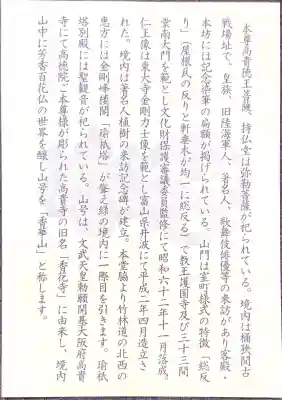 本尊高貴徳王菩薩、持仏堂は弥勒菩薩が祀られている。境内は桶狭間古
戦場址で、皇族、旧陸海軍人、著名人、歌舞伎俳優等の来訪があり客殿・
本坊には記念染筆の扁額が掲げられている。山門は室町様式の特徴「総反
り」(屋根瓦の反りと軒垂木が均一に総反る)で教王護国寺及び三十三間
堂南大門を範とし文化財保護審議委員監修にて昭和六十二年十一月落成。
仁王像は東大寺金剛力士像を範とし富山県井波にて平成二年四月造立さ
れた。境内は著名人植樹の来訪記念碑が建立。本堂脇より竹林道の北西の
恵方には金剛峰楼閣「瑜祇塔」が聳え緑の境内に一際目を引きます。瑜祇
塔別殿には聖観音が祀られている。山号は、文武天皇勅願開基大阪府高貴
寺にて高徳院ご本尊様が彫られた高貴寺の旧名「香花寺」に由来し、境内
山中に芳香百花仏の世界を醸し山号を「香華山」と称します。